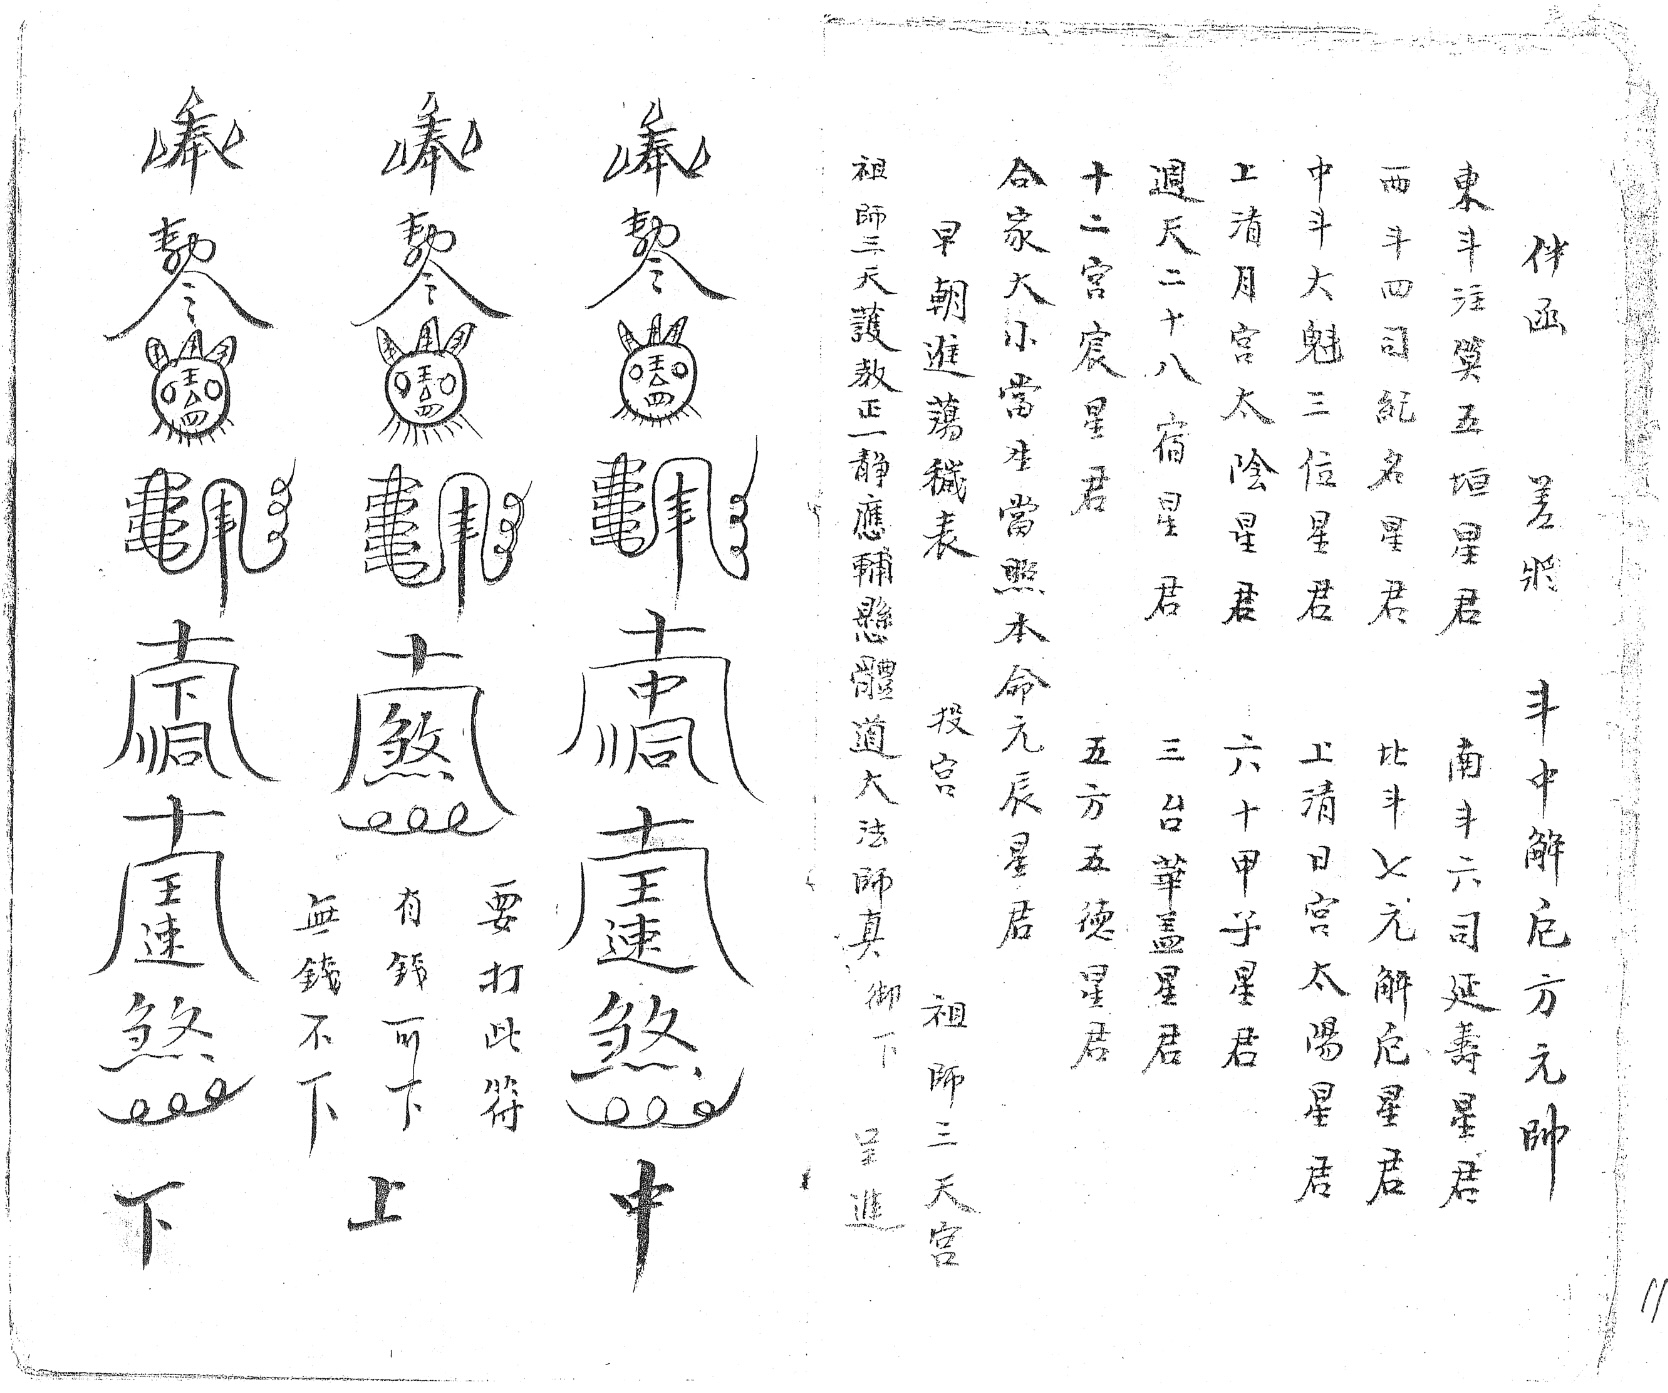 伴函　差將　斗中解厄方元帥
東斗注筭五垣星君　南斗六司延壽星君
西斗四司紀名星君　北斗七元解厄星君
中斗大魁三位星君　上清日宮太陽星君
上清月宮太陰星君　六十甲子星君
週天二十八宿星君　三台華盖星君
十二宮宸星君　五方五德星君
合家大小當生當照本命元辰星君
早朝進蕩穢表　投宮　祖師三天宮
祖師三天護教正一靜應輔懸體道大法師真　御下　呈進
奉
勅令
中洞
王速
煞
中
要打此符
有錢可下
無錢不下
奉
勅令
煞
上
奉
勅令
下洞
王速
煞
下
11